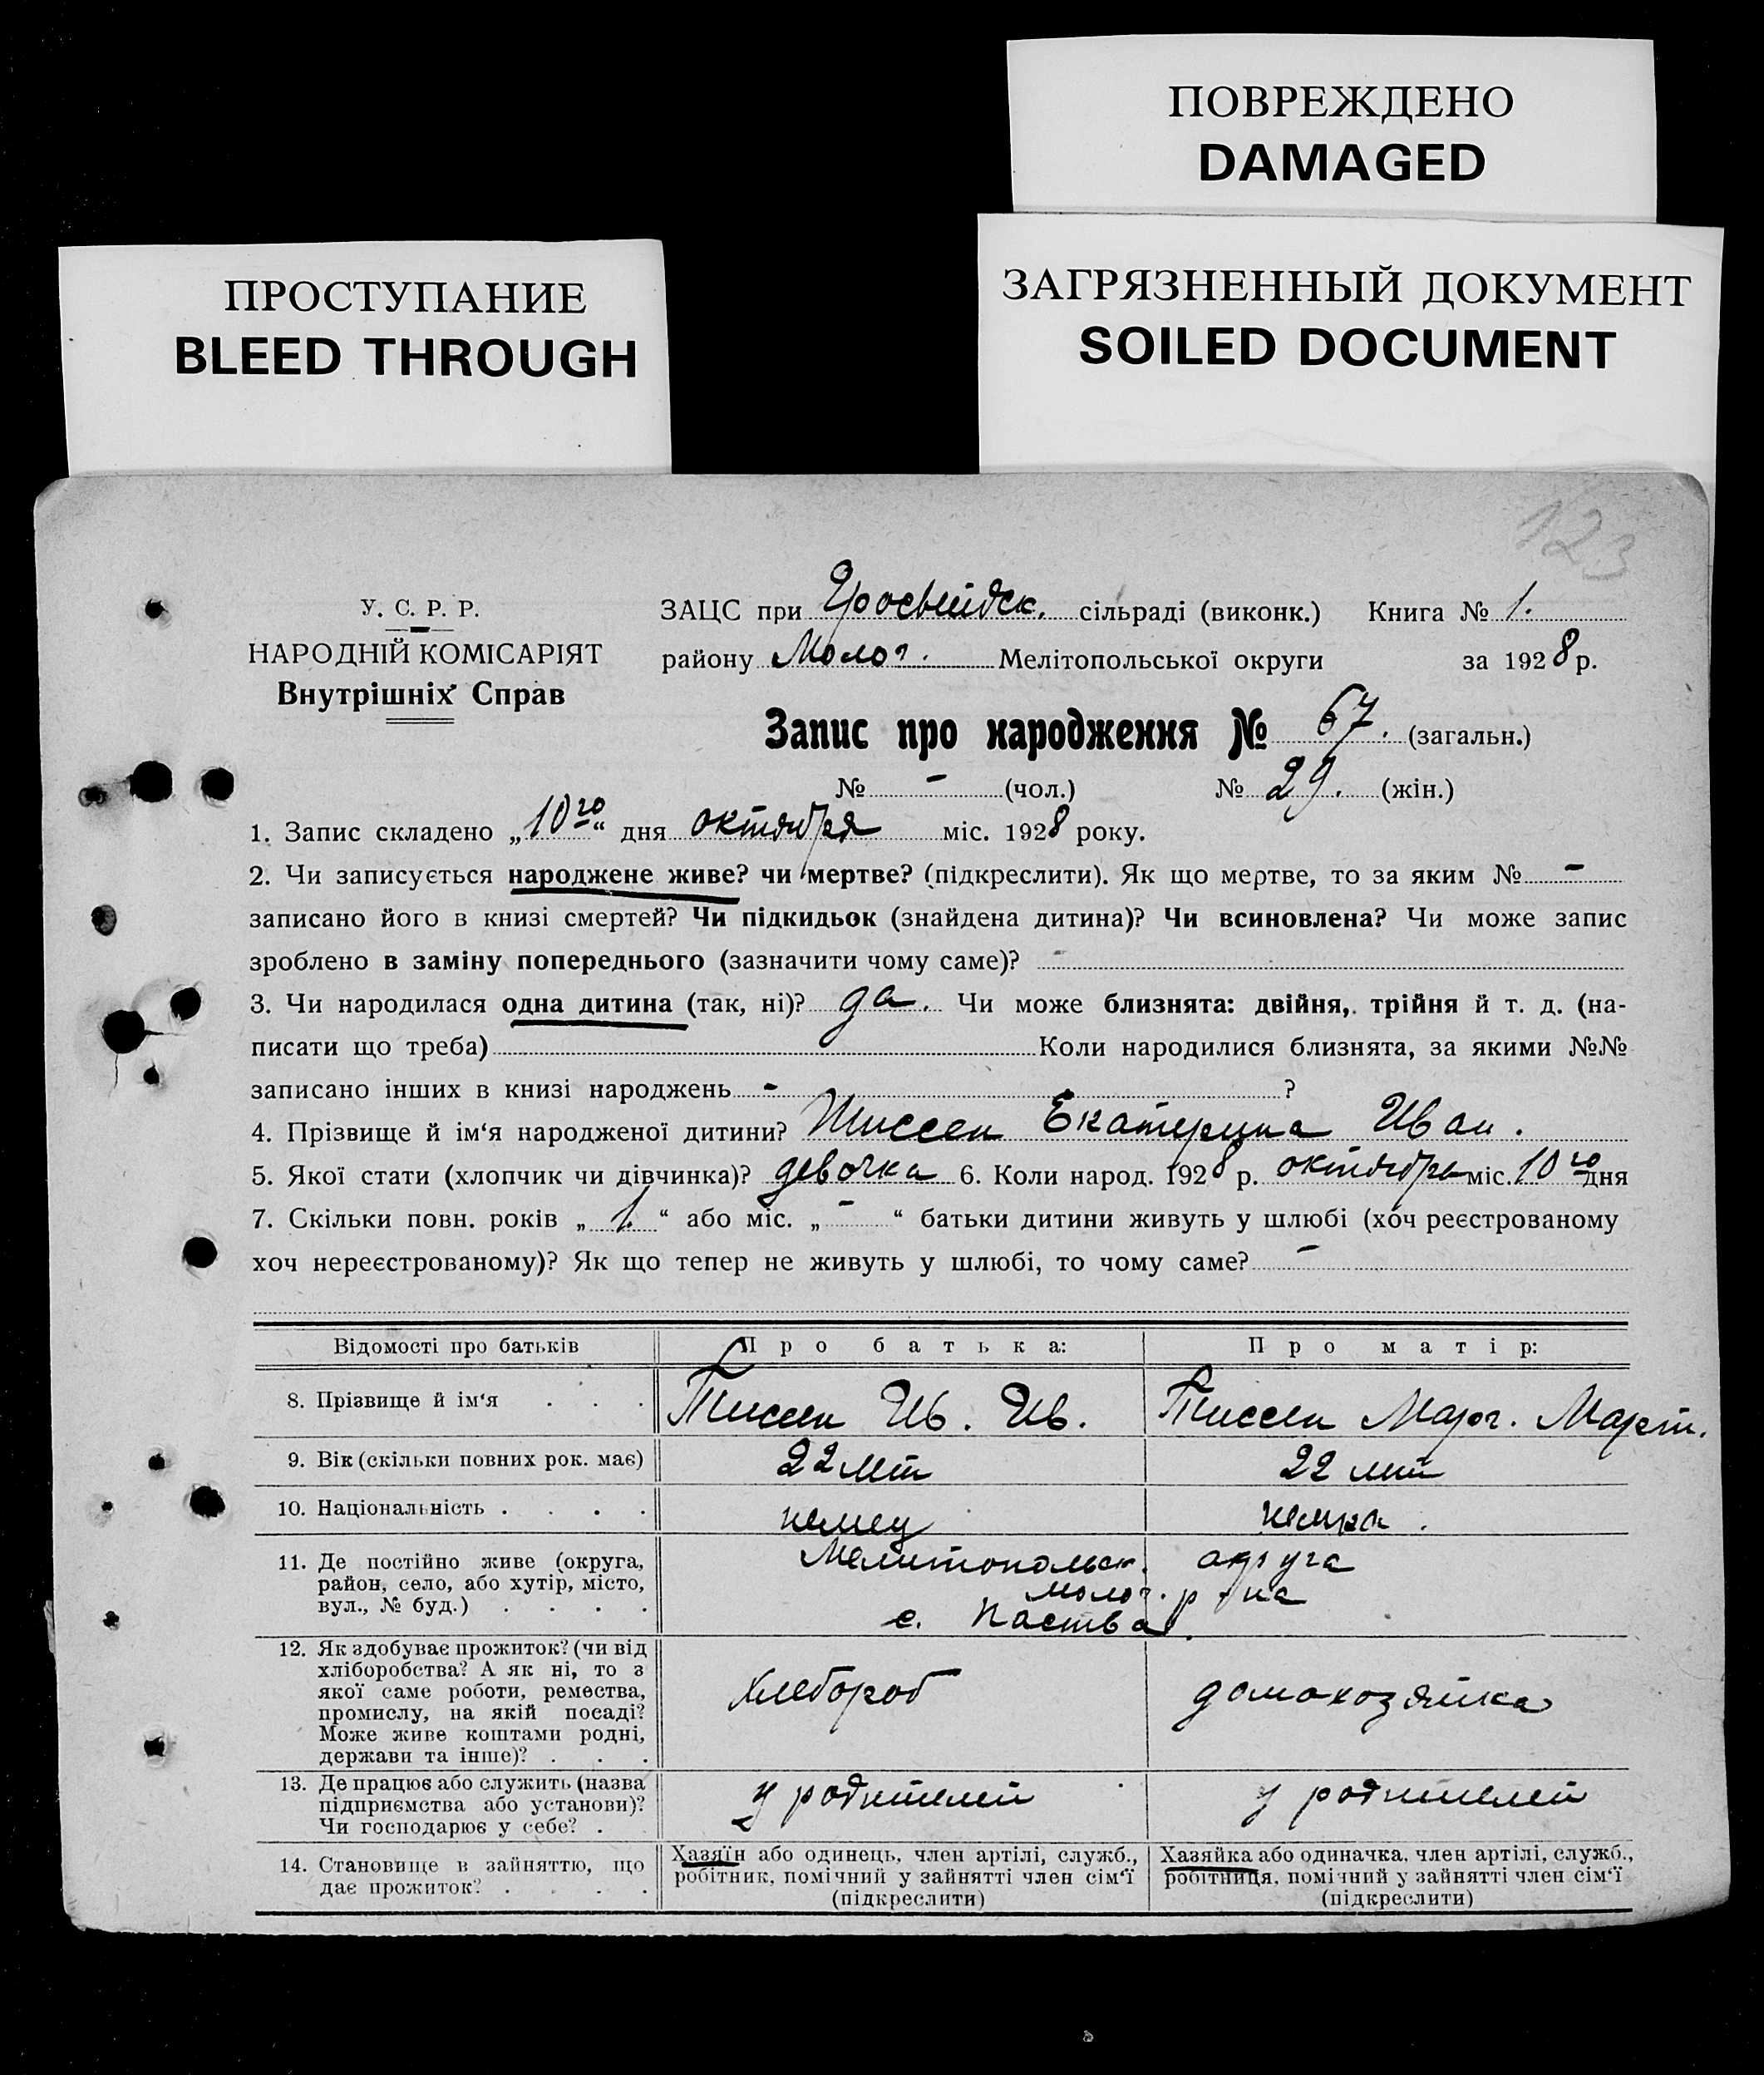 ПОВРЕЖДЕНО
DAMAGED
ПРОСТУПАНИЕ
BLEED THROUGH
ЗАГРЯЗНЕННЫЙ ДОКУМЕНТ
SOILED DOCUMENT
123
У. С. Р. Р.
НАРОДНІЙ КОМІСАРІЯТ
Внутрішніх Справ
ЗАЦС при Гросвейдск. сільраді (виконк.) Книга № 1.
району Молоч. Мелітопольської округи за 1928 р.
Запис про народження № 67. (загальн.)
№ - (чол.) № 29. (жін.)
1. Запис складено „10го“ дня октября міс. 1928 року.
2. Чи записується народжене живе? чи мертве? (підкреслити). Як що мертве, то за яким № -
записано його в книзі смертей? Чи підкидьок (знайдена дитина)? Чи всиновлена? Чи може запис
зроблено в заміну попереднього (зазначити чому саме)? -
3. Чи народилася одна дитина (так, ні)? да. Чи може близнята: двійня, трійня й т. д. (на-
писати що треба) Коли народилися близнята, за якими №№
записано інших в книзі народжень - ?
4. Прізвище й ім‘я народженої дитини? Тиссен Екатерина Иван.
5. Якої стати (хлопчик чи дівчинка)? девочка 6. Коли народ. 1928 р. октября міс. 10го дня
7. Скільки повн. років „ 1. “ або міс. „ - “ батьки дитини живуть у шлюбі (хоч реєстрованому
хоч нереєстрованому)? Як що тепер не живуть у шлюбі, то чому саме? -
Відомості про батьків Про батька: Про матір:
8. Прізвище й ім‘я . . . Тиссен Ив. Ив. Тиссен Марг. Март.
9. Вік (скільки повних рок. має) 22 лет 22 лет
10. Національність . . . . немец немка.
11. Де постійно живе (округа, Мелитопольск. округа
район, село, або хутір, місто, Молоч. р-на
вул., № буд.) . . . . с. Паства.
12. Як здобуває прожиток? (чи від
хліборобства? А як ні, то з
якої саме роботи, ремества, хлебороб домохозяйка
промислу, на якій посаді?
Може живе коштами родні,
держави та інше)? . . .
13. Де працює або служить (назва
підприємства або установи)? у родителей у родителей
Чи господарює у себе? .
14. Становище в зайняттю, що
дає прожиток? . . . .
Хазяїн або одинець, член артілі, служб.,
робітник, помічний у зайнятті член сім‘ї
(підкреслити)
Хазяйка або одиначка, член артілі, служб.,
робітниця, помічний у зайнятті член сім‘ї
(підкреслити)